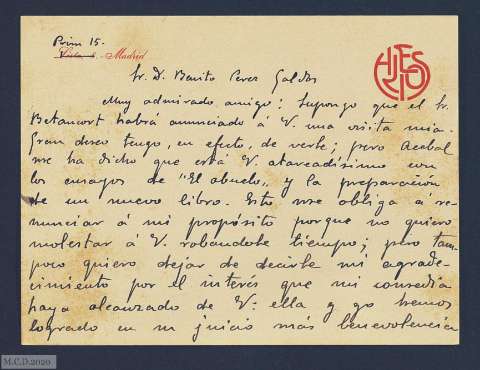 Prim 15.
Madrid
Sr. D. Benito Perez Galdos
Muy admirado amigo: Supongo que el Sr.
Betancort habrá anunciado á V. una visita mia.
Gran deseo tengo, en efecto, de verle; pero Acebal
me ha dicho que está V. atareadísimo con
los ensayos de "El abuelo" y la preparación
de un nuevo libro. Esto me obliga á re-
nunciar á mi propósito porque no quiero
molestar á V. robandole tiempo; pero tam-
poco quiero dejar de decirle mi agrade-
cimiento por el interés que mi comedia
haya alcanzado de V. ella y yo hemos
logrado en su juicio más benevolencia
M.C.D.2020